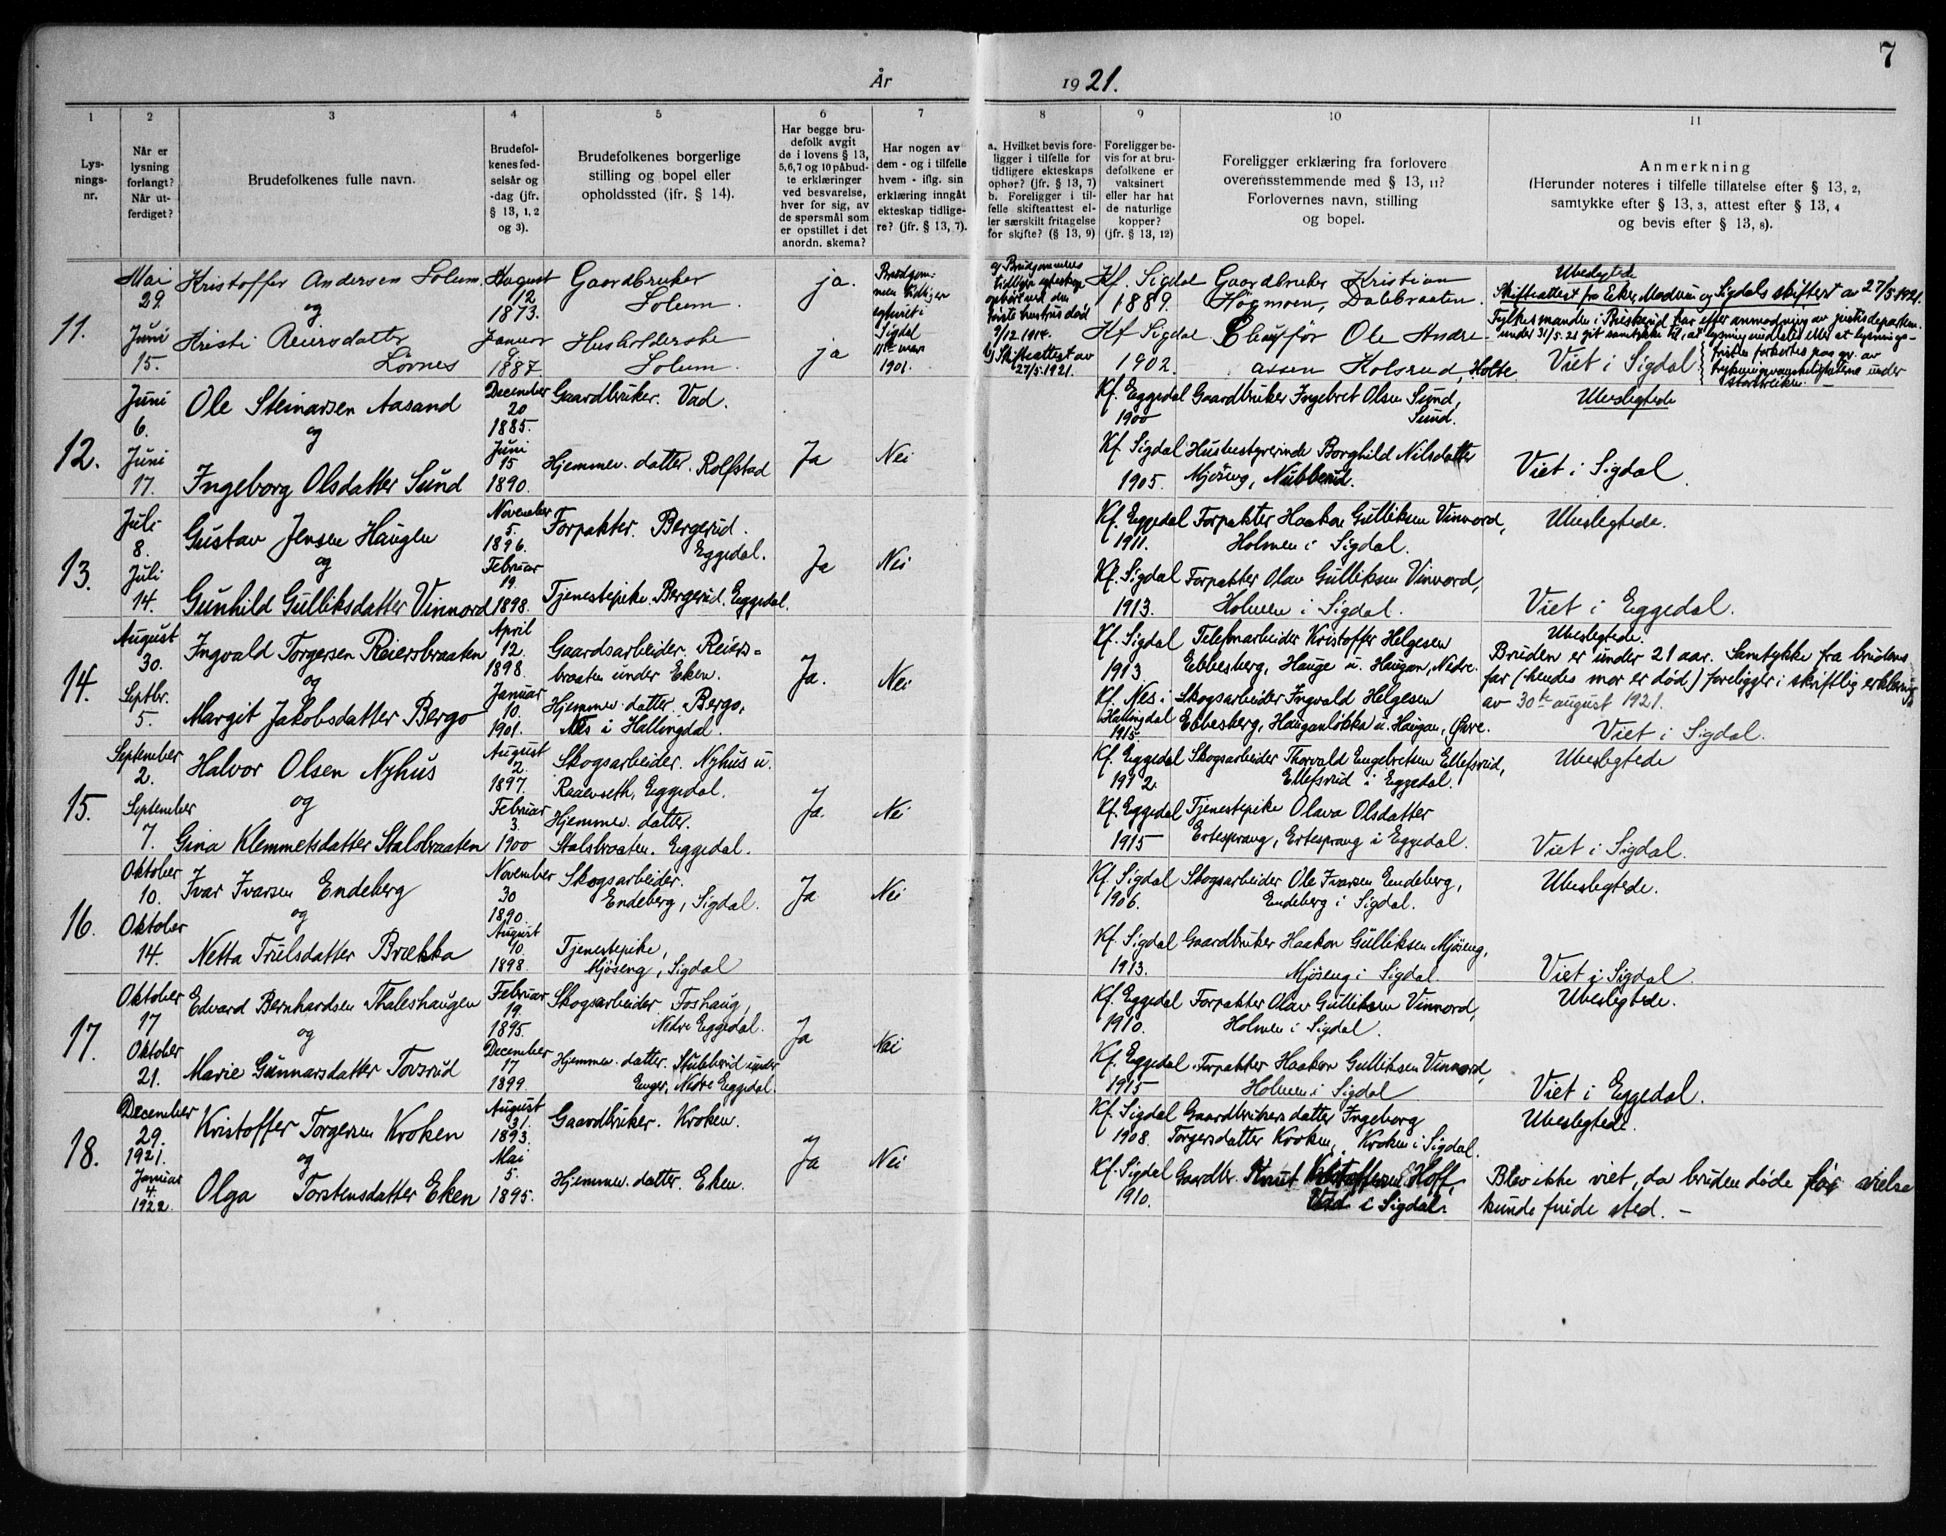 7
År 1921.
1 2 3 4 5 6 7 8 9 10 11
Lys-
nings-
nr.
Når er
lysning
forlangt?
Når ut-
ferdiget?
Brudefolkenes fulle navn.
Brudefol-
kenes fød-
selsår og
-dag (jfr.
§ 13, 1, 2
og 3).
Brudefolkenes borgerlige
stilling og bopel eller
opholdssted (ifr. § 14).
Har begge bru-
defolk avgit
de i lovens § 13,
5,6,7 og 10 påbud-
te erklæringer
ved besvarelse,
hver for sig, av
de spørsmål som
er opstillet i det
anordn. skema?
Har nogen av
dem - og i tilfelle
hvem - iflg. sin
erklæring inngått
ekteskap tidlige-
re? (jfr. § 13, 7).
a. Hvilket bevis fore-
ligger i tilfelle for
tidligere ekteskaps
ophør? (jfr. § 13, 7)
b. Foreligger i til-
felle skifteattest el-
ler særskilt fritagelse
for skifte? (§ 13, 9)
Foreligger be-
vis for at bru-
defolkene er
vaksinert
eller har hat
de naturlige
kopper?
(jfr. § 13, 12)
Foreligger erklæring fra forlovere
overensstemmende med § 13, 11?
Forlovernes navn, stilling
og bopel.
Anmerkning
(Herunder noteres i tilfelle tillatelse efter § 13, 2,
samtykke efter § 13, 3, attest efter § 13, 4
og bevis efter § 13, 8).
11.
Mai
29.
Juni
15.
Kristoffer Andersen Solum
og
Kristi Reiersdatter
Lövnes
August
12
1873.
Januar
1887
Gaardbruker
Solum.
Husholderske
Solum.
ja.
ja
Brudgom-
men tidliger
i
Sigdal
mars
1901.
a) Brudgommens
tidligere egteskap
ophørt ved den
første hustrus død
9/12 1914.
b) Skifteattest av
27/5 1921.
Kf. Sigdal
1889.
Kf Sigdal
1902.
Gaardbruker Kristian
Högmoen, Dalbraaten.
Chauffør Ole Andre-
assen Kolsrud, Holte
Ubeslegtede
Skifteattest fra Eker, Modum og Sigdals skifterett av 27/5 1921.
Fylkesmanden i Buskerud har efter anmodning av justisdepartem.
under 31/5. 21 git samtykke til, at lysning undlates eller at lysnings-
fristen forkortes paa gr. av
trykningsvanskelighetene under
storstreiken. —
Viet i Sigdal
12.
Juni
6.
Juni
17.
Ole Steinarsen Aasand
og
Ingeborg Olsdatter Sund
December
20
1885.
Juni
15
1890.
Gaardbruker. Vad.
Hjemmev. datter. Rolfstad
Ja
Nei
Kf. Eggedal
1900
Kf. Sigdal
1905.
Gaardbruker Ingebret Olsen Sund,
Sund.
Husbestyrerinde Borghild Nilsdatter
Mjöseng, Nubberud.
Ubeslegtede
Viet i Sigdal
13.
Juli
8.
Juli
14.
Gustav Jensen Haugen
og
Gunhild Gulliksdatter Vinnord
November
5.
1896.
Februar
19.
1898.
Forpakter. Bergerud.
Eggedal.
Tjenestepike. Bergerud. Eggedal.
Ja
Nei
Kf. Eggedal
1911.
Kf. Sigdal
1913.
Forpakter Haakon Gulliksen Vinnord,
Holmen i Sigdal.
Forpakter Olav Gulliksen Vinnord,
Holmen i Sigdal.
Ubeslegtede.
Viet i Eggedal.
14.
August
30.
Septbr.
5.
Ingvald Torgersen Reiersbraaten
og
Margit Jakobsdatter Bergo
April
12.
1898.
Januar
10.
1901.
Gaardsarbeider. Reiers=
braaten under Eken.
Hjemmev. datter. Bergo,
Nes i Hallingdal.
Ja.
Nei
Kf. Sigdal
1913.
Kf. Nes i
Hallingdal
1915
Telefonarbeider Kristoffer Helgesen
Ebbesberg, Hauge u. Haugan, Nedre.
Skogsarbeider Ingvald Helgesen
Ebbesberg, Hauganløkka u. Haugan, Øvre.
Ubeslegtede.
Bruden er under 21 aar. Samtykke fra brudens
far (hendes mor er död) foreligger i skriftlig erklæring
av 30te august 1921.
Viet i Sigdal.
15.
September
2.
September
7.
Halvor Olsen Nyhus
og
Gina Klemmetsdatter Stalsbraaten
August
2.
1897.
Februar
3.
1900
Skogsarbeider. Nyhus u.
Raaenseth, Eggedal.
Hjemmev. datter.
Stalsbraaten. Eggedal.
Ja.
Nei
Kf. Eggedal
1912.
Kf. Eggedal
1915
Skogsarbeider Thorvald Engebretsen Ellefsrud,
Ellefsrud i Eggedal.
Tjenestepike Olava Olsdatter
Ertesprang, Ertesprang i Eggedal.
Ubeslegtede
Viet i Sigdal.
16.
Oktober
10.
Oktober
14.
Ivar Ivarsen Endeberg
og
Netta Trulsdatter Brækka
November
30
1890.
August
10.
1898.
Skogsarbeider.
Endeberg, Sigdal.
Tjenestepike,
Mjöseng, Sigdal
Ja
Nei
Kf. Sigdal
1906.
Kf. Sigdal
1913.
Skogsarbeider Ole Ivarsen Endeberg,
Endeberg i Sigdal.
Gaardbruker Haakon Gulliksen Mjöseng,
Mjöseng i Sigdal.
Ubeslegtede.
Viet i Sigdal
17.
Oktober
17
Oktober
21.
Edvard Bernhardsen Thaleshaugen
og
Marie Gunnarsdatter Tovsrud
Februar
19.
1895.
December
17
1899.
Skogsarbeider. Foshaug,
Nedre Eggedal.
Hjemmev. datter. Stubberud under
Enger, Nedre Eggedal.
Ja
Nei
Kf. Eggedal
1910.
Kf. Eggedal
1915
Forpakter Olav Gulliksen Vinnord,
Holmen i Sigdal.
Forpakter Haakon Gulliksen Vinnord,
Holmen i Sigdal
Ubeslegtede.
Viet i Eggedal.
18.
December
29.
1921.
Januar
4.
1922.
Kristoffer Torgersen Kroken
og
Olga Torstensdatter Eken
August
31.
1893.
Mai
5.
1895.
Gaardbruker. Kroken.
Hjemmev. datter. Eken.
Ja
Nei
Kf. Sigdal
1908.
Kf. Sigdal
1910.
Gaardbrukersdatter Ingeborg
Torgersdatter Kroken, Kroken i Sigdal.
Gaardbr. Knut Kristoffersen Hoff,
Vad i Sigdal.
Ubeslegtede.
Blev ikke viet, da bruden döde før vielse
kunde finde sted. —